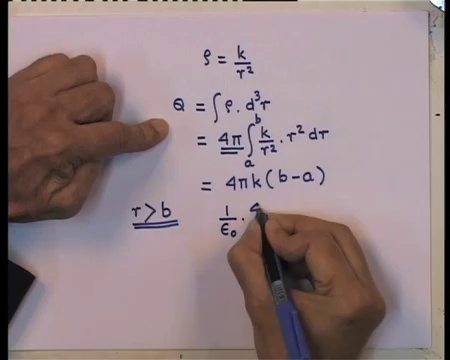 ρ = k/r²
Q = ∫ ρ. d³r
= 4π ∫ₐᵇ k/r² . r² dr
= 4πk (b-a)
r > b 1/ε₀ .